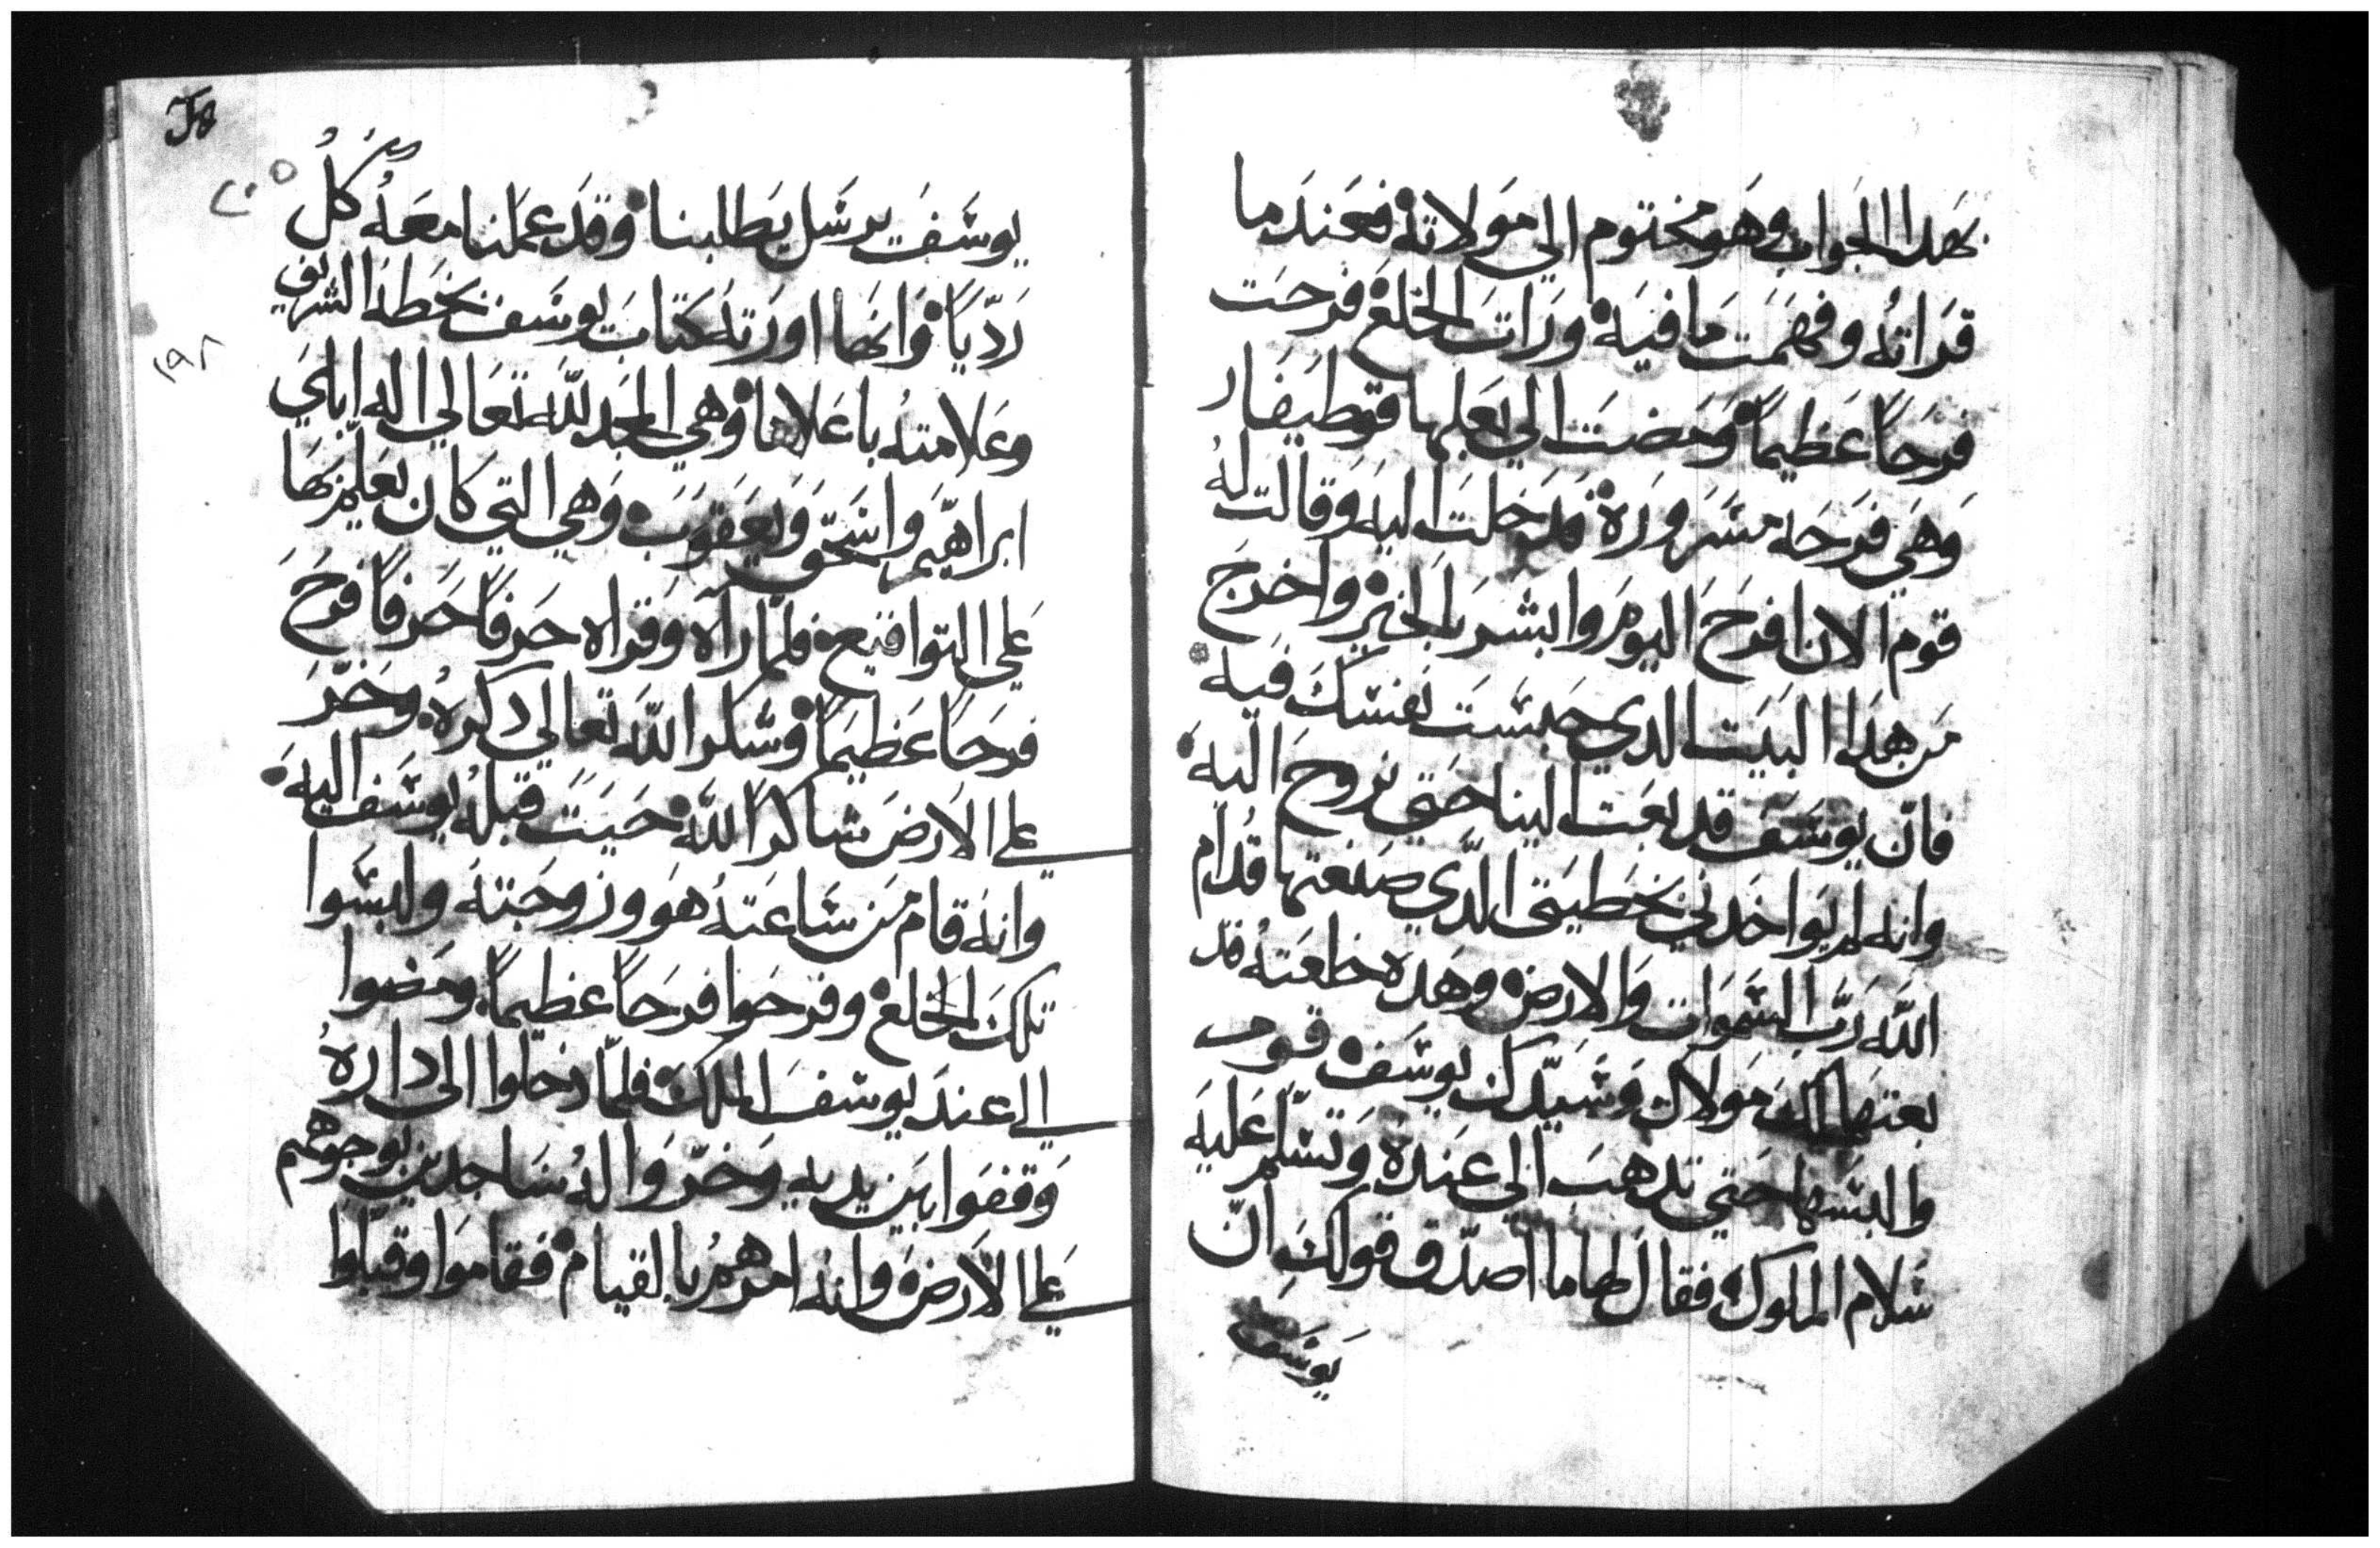 بهدا الجواب وهو مختوم الي مولاته فعندما
قراته وفهمت ما فيه ورات الخلع فرحت
فرحاً عظيماً ومضت الي بعلها قوطيفار
وهي فرحه مسروره قد خلت اليه وقالت له
قوم الان افرح اليوم وابشر بالخير واخرج
من هدا البيت الدي حبست نفسك فيه
فانّ يوسف قد بعت الينا حتي نروح اليه
وانه لم يواخدني بخطيتي الدّي صنعتها قدام
اللّه ربّ السموات والارض وهده خلعته قد
بعتها لك مولاك وسيّدك يوسف قوم
والبسها حتي تدهب الي عنده وتسلّم عليه
سلام الملوك فقال لها ما اصدّق قولك انّ
يوسف
٢٠٥
١٩٨
يوسف يرسل يطلبنا وقد عملنا معه كل
ردّياً وانها اورته كتاب يوسف بخطه الشريف
وعلامته باعلاها وهي المجد للّه تعالي اله اباي
ابراهيم واسحق ويعقوب وهي التي كان يعلم بها
علي التواقيع فلمّا رآه وقراه حرفاً حرفاً فرح
فرحاً عظيماً وشكر اللّه تعالي دكره وخرّ
علي الارض شاكراً للّه حيت قبله يوسف اليه
وانه قام من ساعته هو وزوجته ولبسوا
تلك الخلع وفرحوا فرحاً عظيماً ومضوا
الي عند يوسف الملك فلمّا دخلوا الي داره
وقفوا بين يديه وخرّوا له ساجدين بوجوههم
علي الارض وانه امرهم بالقيام فقاموا وقبّلوا